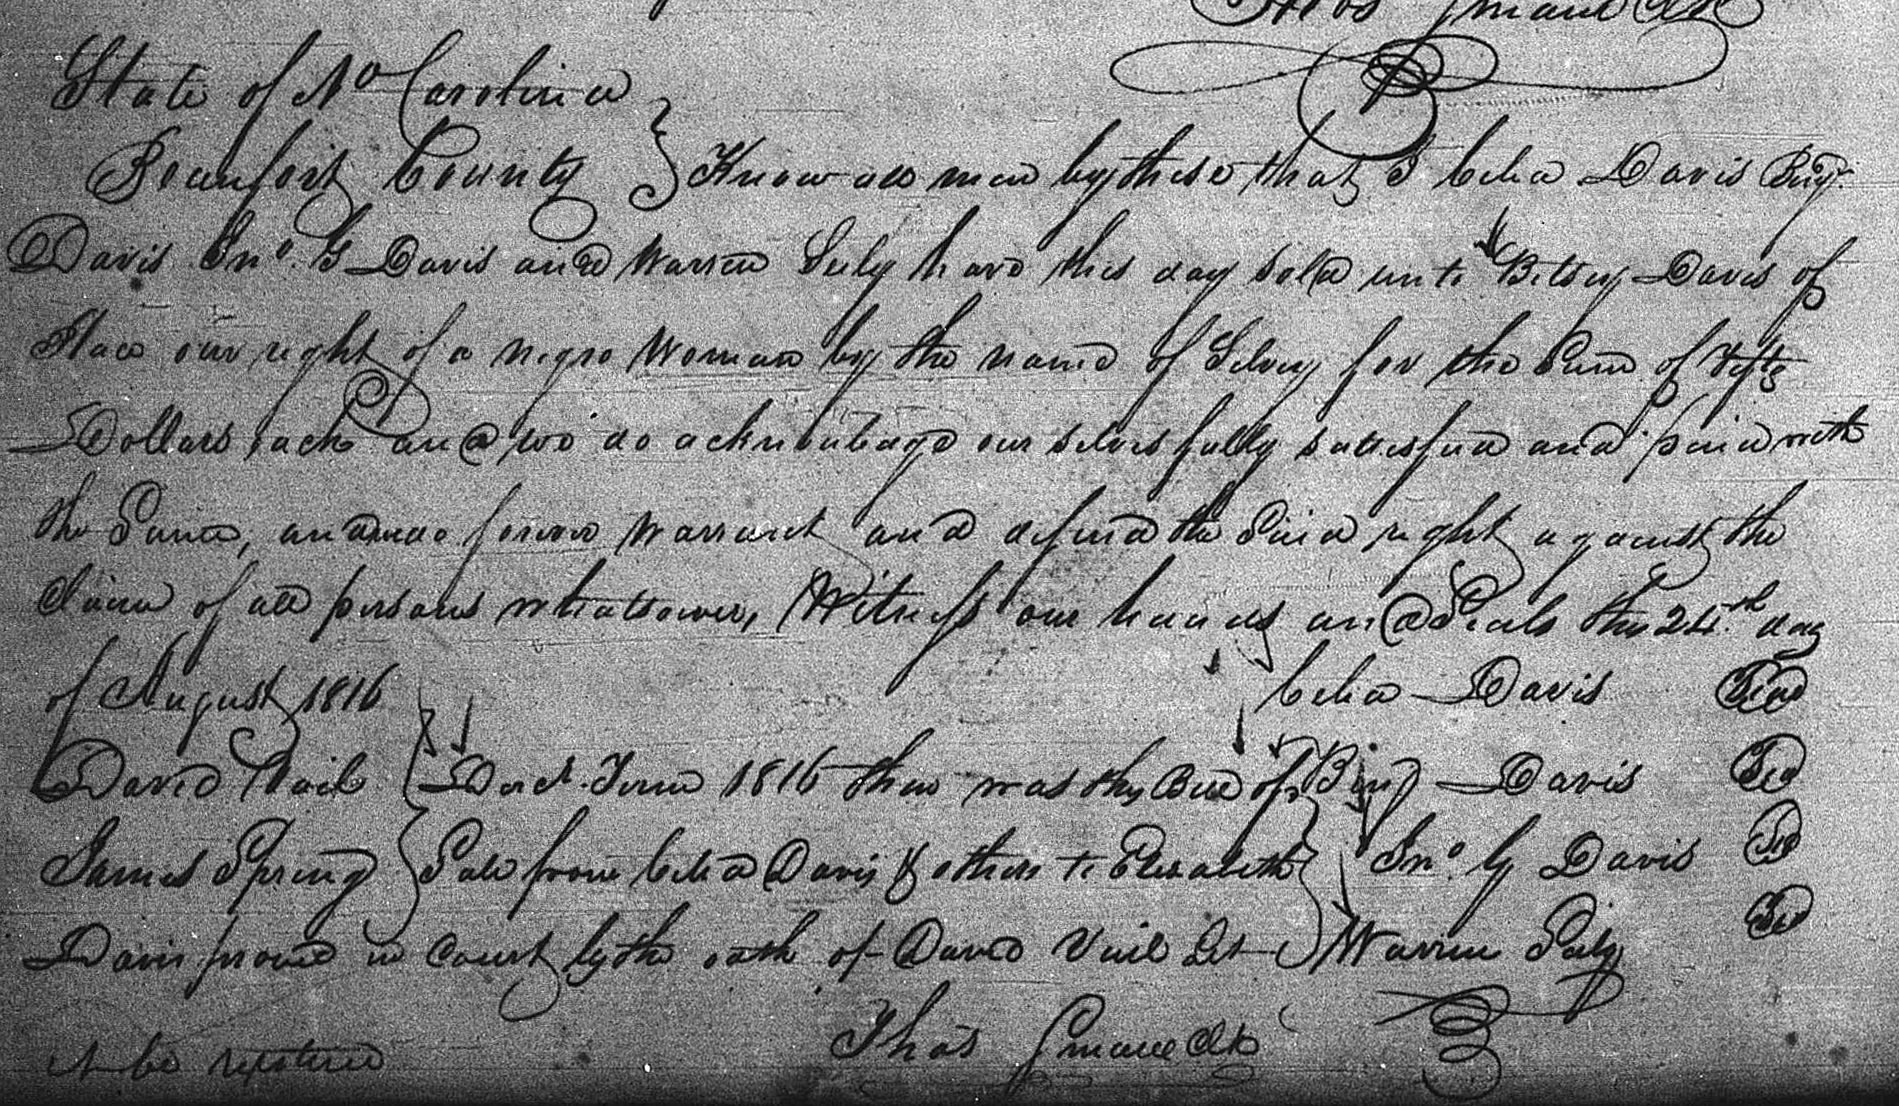 Thos Smaw Clk
State of No Carolina
Beaufort County } Know all men by these that I Celia Davis Benj.
Davis Jno. G Davis and Warren Suly have this day sold unto Betsey Davis of
State our right of a negro Woman by the name of Selvy for the Sum of Fifty
Dollars each and we do acknowledge our selves fully satisfied and paid with
the Same, and do forever Warrant and defend the Said right against the
Claim of all persons whatsoever, Witness our hands and Seals this 24th day
of August 1816 Celia Davis Seal
David Vail } Decr. Term 1816 then was this Bill of } Benj Davis Seal
James Spring } Sale from Celia Davis & others to Elizabeth } Jno. G Davis Seal
Davis proved in Court by the oath of David Vail Let } Warren Suly Seal
it be registered Thos Smaw Clk